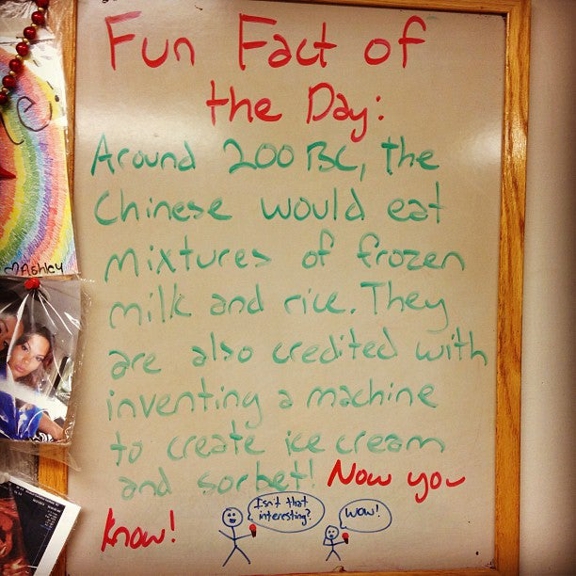 Fun Fact of
the Day:
Around 200 BC, the
Chinese would eat
mixtures of frozen
milk and rice. They
are also credited with
inventing a machine
to create ice cream
and sorbet! Now you
know!
Isn't that
interesting?
Wow!
Ashley